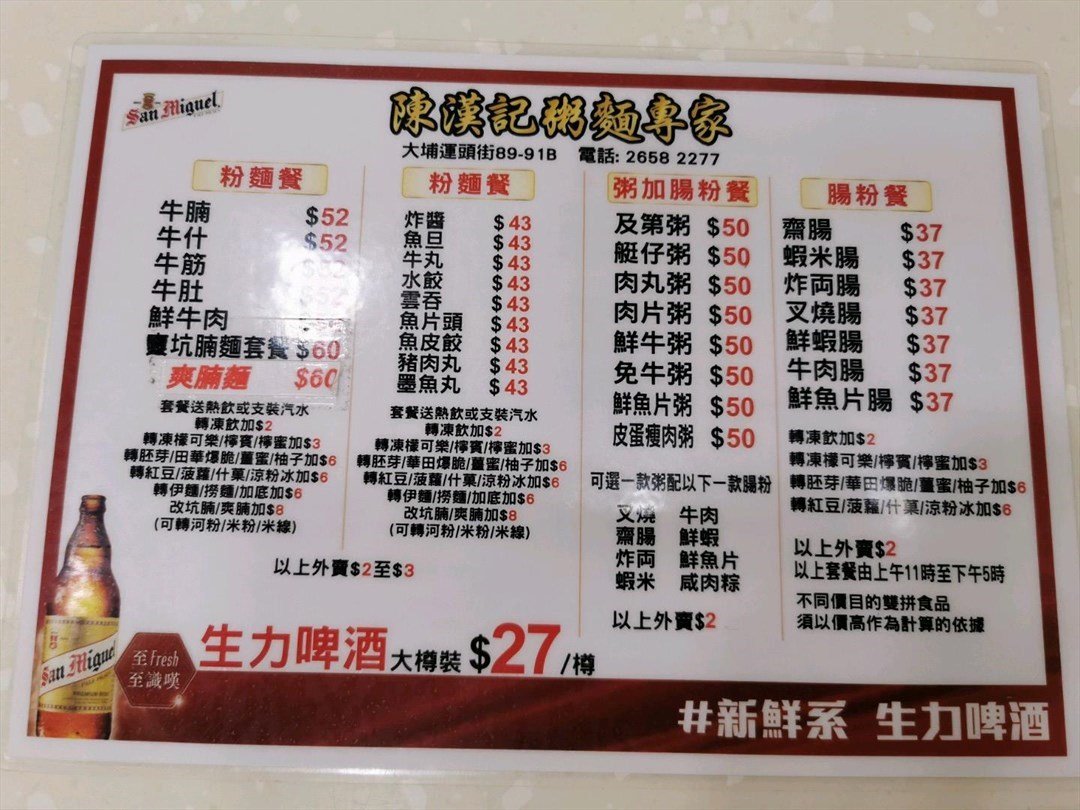 San Miguel
陳漢記粥麵專家
大埔運頭街89-91B 電話: 2658 2277
粉麵餐
牛腩 $52
牛什 $52
牛筋 $52
牛肚 $52
鮮牛肉
坑腩麵套餐 $60
爽腩麵 $60
套餐送熱飲或支裝汽水
轉凍飲加$2
轉凍檬可樂/檸賓/檸蜜加$3
轉胚芽/田華爆脆/薑蜜/柚子加$6
轉紅豆/菠蘿/什菓/涼粉冰加$6
轉伊麵/撈麵/加底加$6
改坑腩/爽腩加$8
(可轉河粉/米粉/米線)
粉麵餐
炸醬 $43
魚旦 $43
牛丸 $43
水餃 $43
雲吞 $43
魚片頭 $43
魚皮餃 $43
豬肉丸 $43
墨魚丸 $43
套餐送熱飲或支裝汽水
轉凍飲加$2
轉凍檬可樂/檸賓/檸蜜加$3
轉胚芽/華田爆脆/薑蜜/柚子加$6
轉紅豆/菠蘿/什菓/涼粉冰加$6
轉伊麵/撈麵/加底加$6
改坑腩/爽腩加$8
(可轉河粉/米粉/米線)
以上外賣$2至$3
粥加腸粉餐
及第粥 $50
艇仔粥 $50
肉丸粥 $50
肉片粥 $50
鮮牛粥 $50
免牛粥 $50
鮮魚片粥 $50
皮蛋瘦肉粥 $50
可選一款粥配以下一款腸粉
叉燒 牛肉
齋腸 鮮蝦
炸両 鮮魚片
蝦米 咸肉粽
以上外賣$2
腸粉餐
齋腸 $37
蝦米腸 $37
炸両腸 $37
叉燒腸 $37
鮮蝦腸 $37
牛肉腸 $37
鮮魚片腸 $37
轉凍飲加$2
轉凍檬可樂/檸賓/檸蜜加$3
轉胚芽/華田爆脆/薑蜜/柚子加$6
轉紅豆/菠蘿/什菓/涼粉冰加$6
以上外賣$2
以上套餐由上午11時至下午5時
不同價目的雙拼食品
須以價高作為計算的依據
San Miguel
至fresh
至識嘆
生力啤酒 大樽裝 $27/樽
#新鮮系 生力啤酒